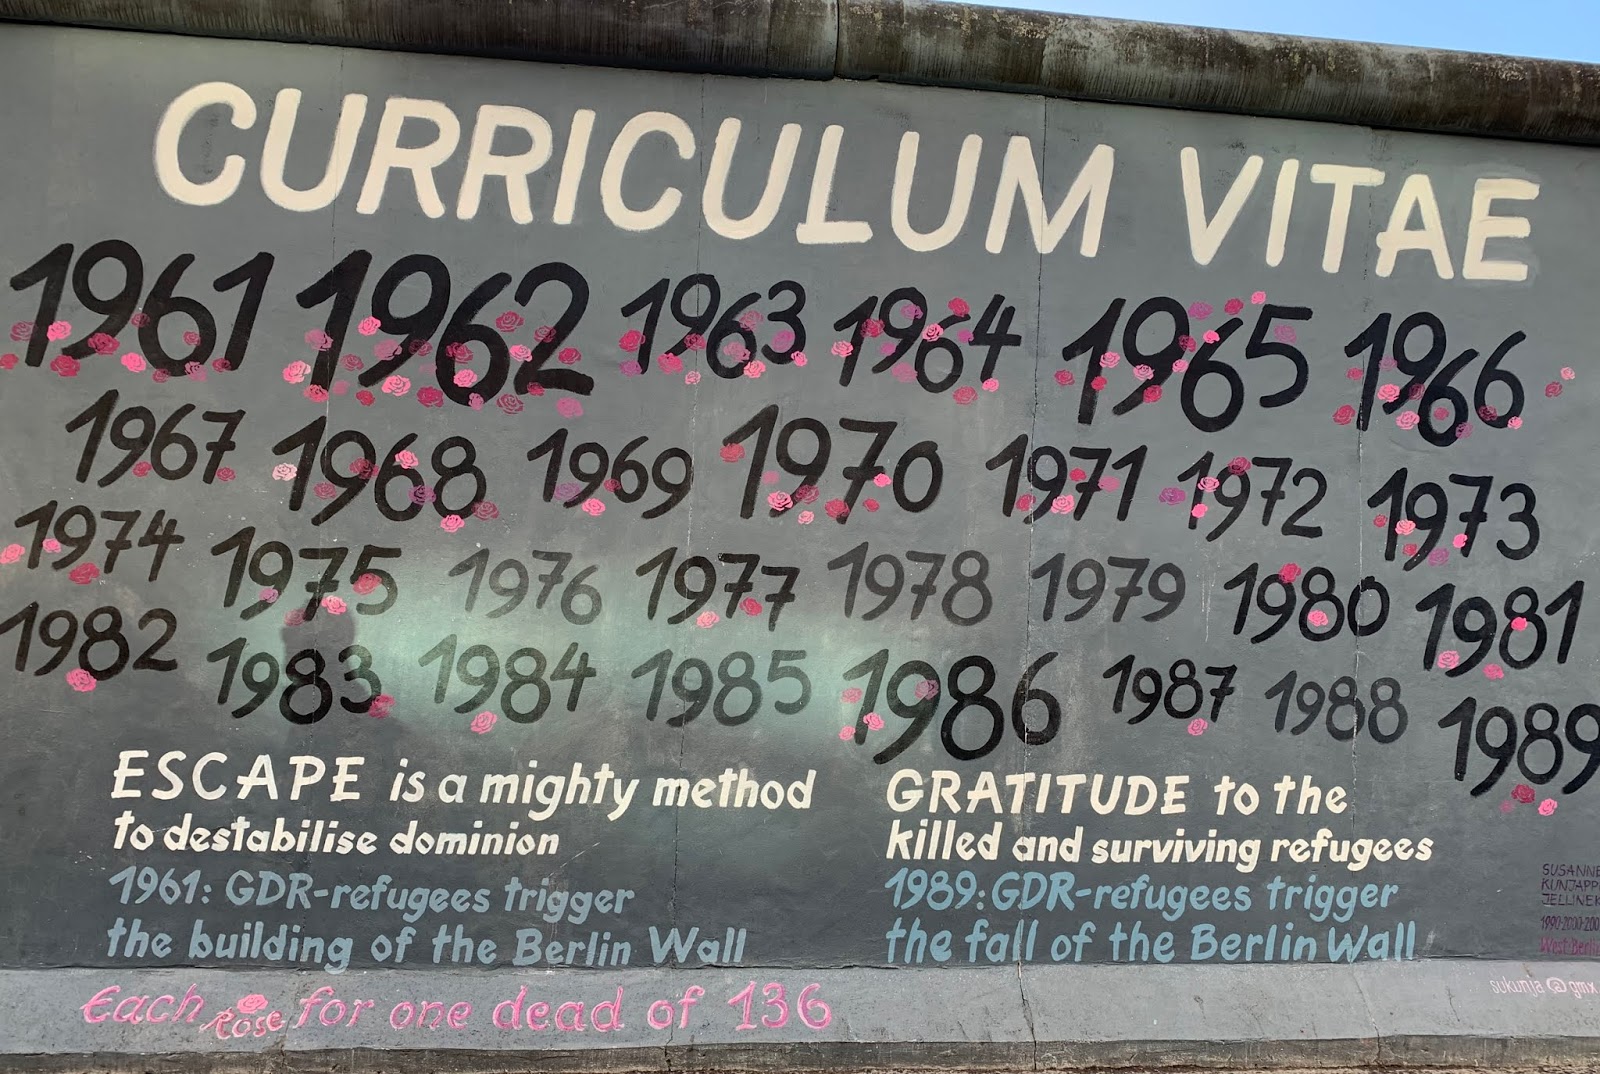 CURRICULUM VITAE
1961 1962 1963 1964 1965 1966
1967 1968 1969 1970 1971 1972 1973
1974 1975 1976 1977 1978 1979 1980 1981
1982 1983 1984 1985 1986 1987 1988 1989
ESCAPE is a mighty method
to destabilise dominion
1961: GDR-refugees trigger
the building of the Berlin Wall
GRATITUDE to the
killed and surviving refugees
1989: GDR-refugees trigger
the fall of the Berlin Wall
SUSANNE
KUNJAPPU
JELLINEK
1990-2000-200
West-Berlin
Each rose for one dead of 136
sukunja @ gmx